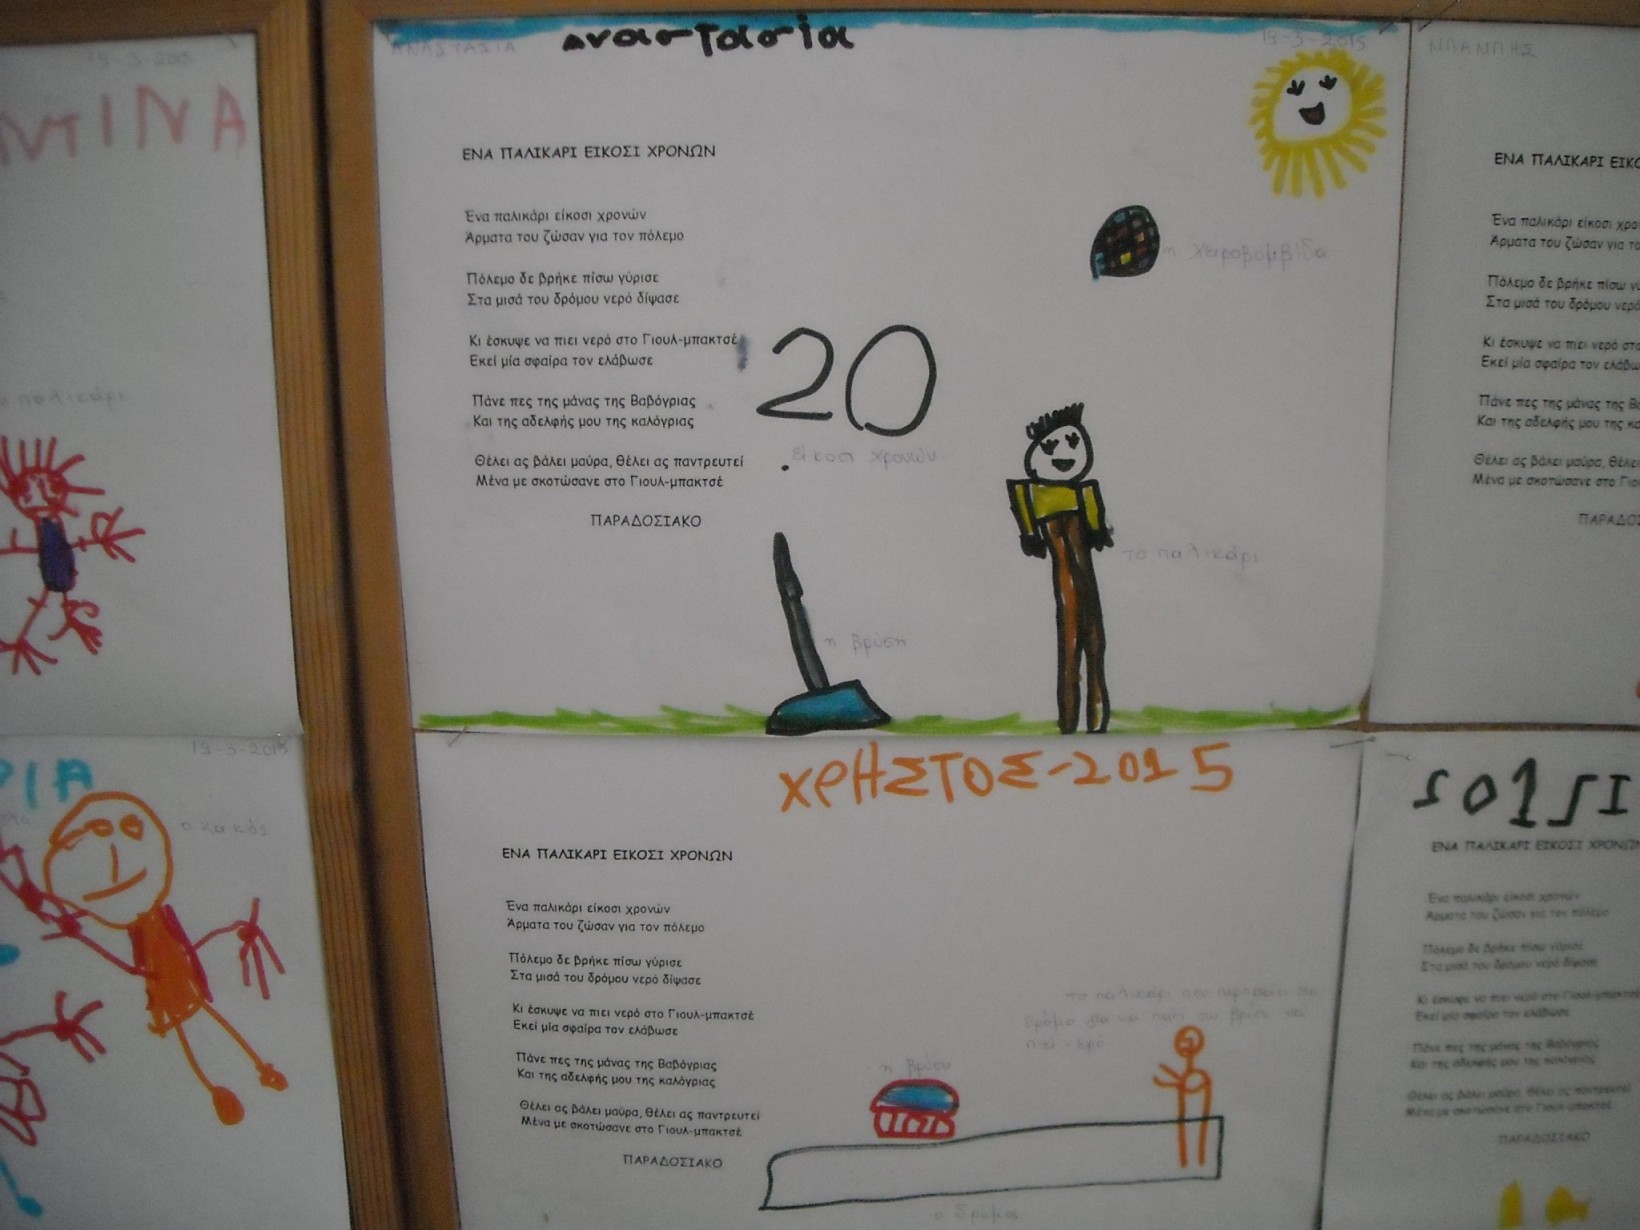 19-3-2015
ΝΤΙΝΑ
παλικάρι
ΑΝΑΣΤΑΣΙΑ
αναστασία
19-3-2015
ΕΝΑ ΠΑΛΙΚΑΡΙ ΕΙΚΟΣΙ ΧΡΟΝΩΝ
Ένα παλικάρι είκοσι χρονών
Άρματα του ζώσαν για τον πόλεμο
Πόλεμο δε βρήκε πίσω γύρισε
Στα μισά του δρόμου νερό δίψασε
Κι έσκυψε να πιει νερό στο Γιουλ-μπακτσέ
Εκεί μία σφαίρα τον ελάβωσε
Πάνε πες της μάνας της Βαβόγριας
Και της αδελφής μου της καλόγριας
Θέλει ας βάλει μαύρα, θέλει ας παντρευτεί
Μένα με σκοτώσανε στο Γιουλ-μπακτσέ
ΠΑΡΑΔΟΣΙΑΚΟ
η χειροβομβίδα
20
είκοσι χρονών
το παλικάρι
η βρύση
ΜΠΑΜΠΗΣ
ΕΝΑ ΠΑΛΙΚΑΡΙ
Ένα παλικάρι είκοσι
Άρματα του ζώσαν για
Πόλεμο δε βρήκε πίσω
Στα μισά του δρόμου νερό
Κι έσκυψε να πιει νερό
Εκεί μία σφαίρα τον
Πάνε πες της μάνας της
Και της αδελφής μου της
Θέλει ας βάλει μαύρα, θέλει
Μένα με σκοτώσανε στο
19-3-2015
ΡΙΑ
ο κακός
ΧΡΗΣΤΟΣ-2015
ΕΝΑ ΠΑΛΙΚΑΡΙ ΕΙΚΟΣΙ ΧΡΟΝΩΝ
Ένα παλικάρι είκοσι χρονών
Άρματα του ζώσαν για τον πόλεμο
Πόλεμο δε βρήκε πίσω γύρισε
Στα μισά του δρόμου νερό δίψασε
Κι έσκυψε να πιει νερό στο Γιουλ-μπακτσέ
Εκεί μία σφαίρα τον ελάβωσε
Πάνε πες της μάνας της Βαβόγριας
Και της αδελφής μου της καλόγριας
Θέλει ας βάλει μαύρα, θέλει ας παντρευτεί
Μένα με σκοτώσανε στο Γιουλ-μπακτσέ
ΠΑΡΑΔΟΣΙΑΚΟ
το παλικάρι που περπατάει στο
δρόμο για να πάει στη βρύση να
πιει νερό
η βρύση
ο δρόμος
ΕΝΑ ΠΑΛΙΚΑΡΙ ΕΙΚΟΣΙ ΧΡΟΝΩΝ
Ένα παλικάρι είκοσι χρονών
Άρματα του ζώσαν για τον πόλεμο
Πόλεμο δε βρήκε πίσω γύρισε
Στα μισά του δρόμου νερό δίψασε
Κι έσκυψε να πιει νερό στο Γιουλ-μπακτσέ
Εκεί μία σφαίρα τον ελάβωσε
Πάνε πες της μάνας της Βαβόγριας
Και της αδελφής μου της καλόγριας
Θέλει ας βάλει μαύρα, θέλει ας παντρευτεί
Μένα με σκοτώσανε στο Γιουλ-μπακτσέ
ΠΑΡΑΔΟΣΙΑΚΟ